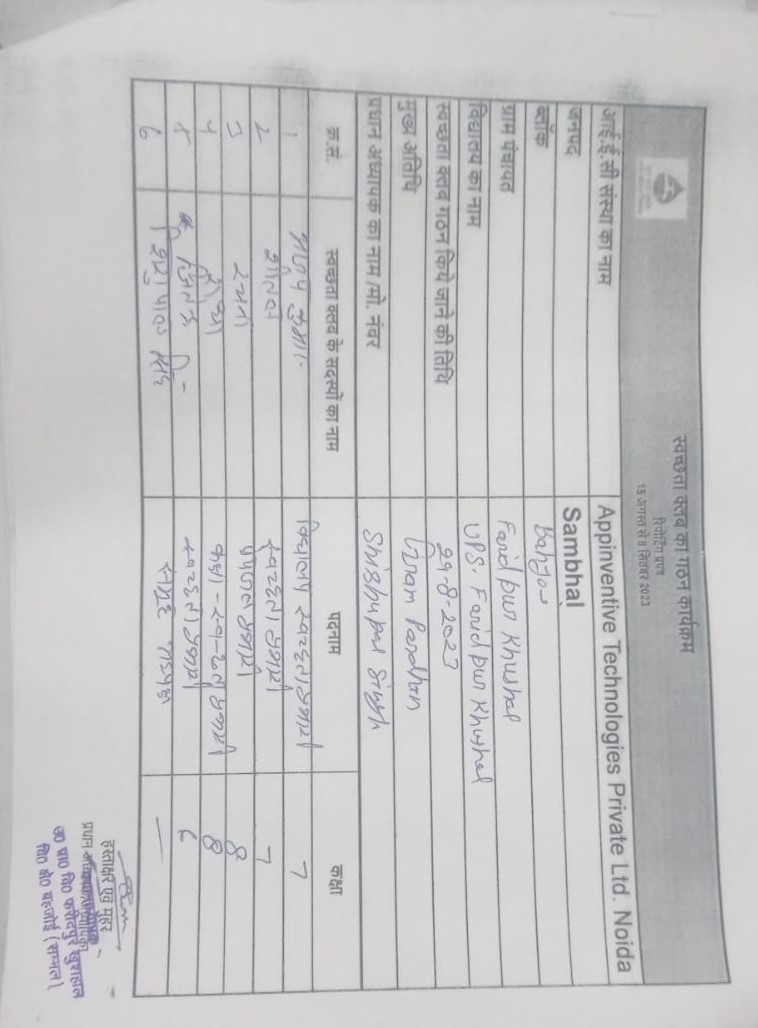 स्वच्छता क्लब का गठन कार्यक्रम
रिपोर्टिंग प्रपत्र
15 अगस्त से 8 सितंबर 2023
आई.ई.सी संस्था का नाम Appinventive Technologies Private Ltd. Noida
जनपद Sambhal
ब्लॉक Bahjoi
ग्राम पंचायत Faridpur Khushal
विद्यालय का नाम UPS. Faridpur Khushal
स्वच्छता क्लब गठन किये जाने की तिथि 29-8-2023
मुख्य अतिथि Gram Pardhan
प्रधान अध्यापक का नाम /मो. नंबर Shishupal Singh
क्र.सं. स्वच्छता क्लब के सदस्यों का नाम पदनाम कक्षा
1 कुमार विद्यालय स्वच्छता प्रभारी 7
2 स्वच्छता प्रभारी 7
3 प्रभारी 8
4 कक्षा प्रभारी 8
5 स्वच्छता प्रभारी 6
6 शिशुपाल सिंह —
हस्ताक्षर एवं मुहर
प्रधान
उ0 प्रा0 वि0 फरीदपुर खुशहाल
वि0 क्षे0 बहजोई (सम्भल)